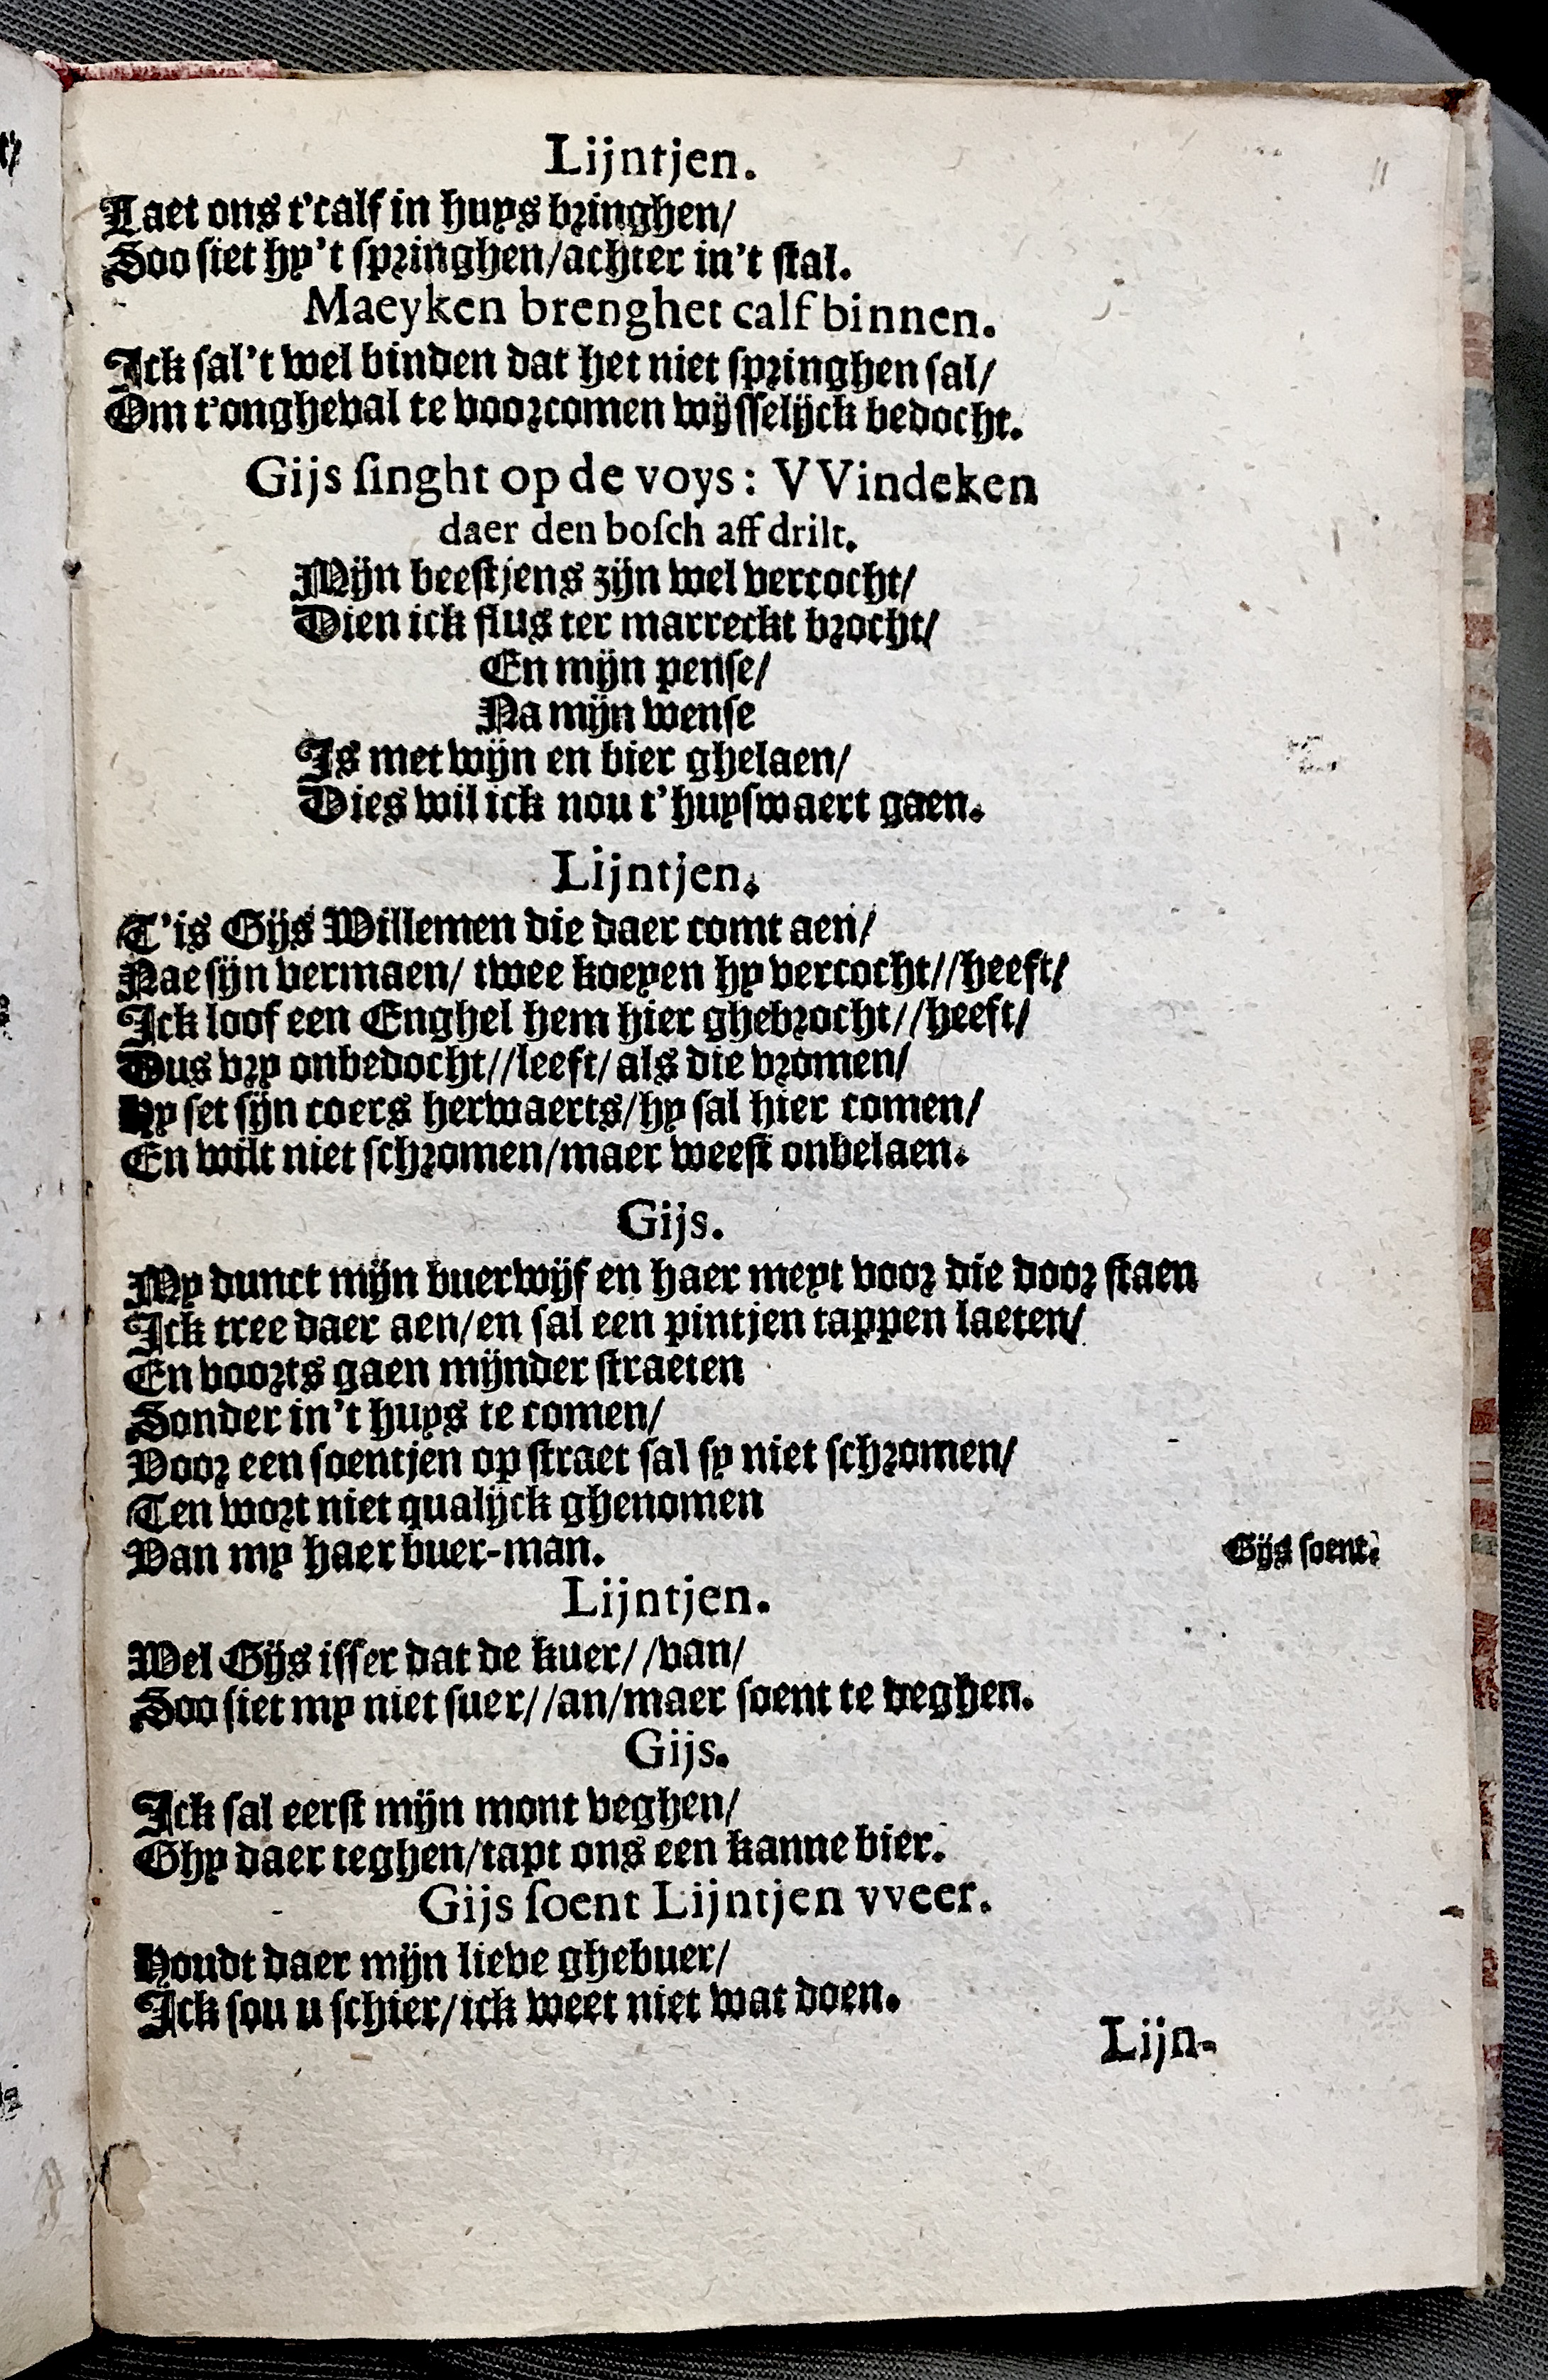 Lijntjen.
Laet ons t'calf in huys bringhen/
Soo siet hy't springhen/achter in't stal.
Maeyken brenghet calf binnen.
Ick sal't wel binden dat het niet springhen sal/
Om t'ongheval te voorcomen wijsselijck bedocht.
Gijs singht op de voys: VVindeken
daer den bosch aff drilt.
Mijn beestjens zijn wel vercocht/
Dien ick flus ter marreckt brocht/
En mijn pense/
Na mijn wense
Is met wijn en bier ghelaen/
Dies wil ick nou t'huyswaert gaen.
Lijntjen.
T'is Gijs Willemen die daer comt aen/
Nae sijn vermaen/ twee koeyen hy vercocht//heeft/
Ick loof een Enghel hem hier ghebrocht//heeft/
Dus vry onbedocht//leeft/ als die vromen/
Hy set sijn coers herwaerts/hy sal hier comen/
En wilt niet schromen/maer weest onbelaen.
Gijs.
My dunct mijn buerwijf en haer meyt voor die door staen
Ick tree daer aen/en sal een pintjen tappen laeten/
En voorts gaen mijnder straeten
Sonder in't huys te comen/
Voor een soentjen op straet sal sy niet schromen/
Ten wort niet qualijck ghenomen
Van my haer buer-man.
Gijs soent.
Lijntjen.
Wel Gijs isser dat de kuer//van/
Soo siet my niet suer//an/maer soent te deghen.
Gijs.
Ick sal eerst mijn mont veghen/
Ghy daer teghen/tapt ons een kanne bier.
Gijs soent Lijntjen vveer.
Houdt daer mijn lieve ghebuer/
Ick sou u schier/ick weet niet wat doen.
Lijn-